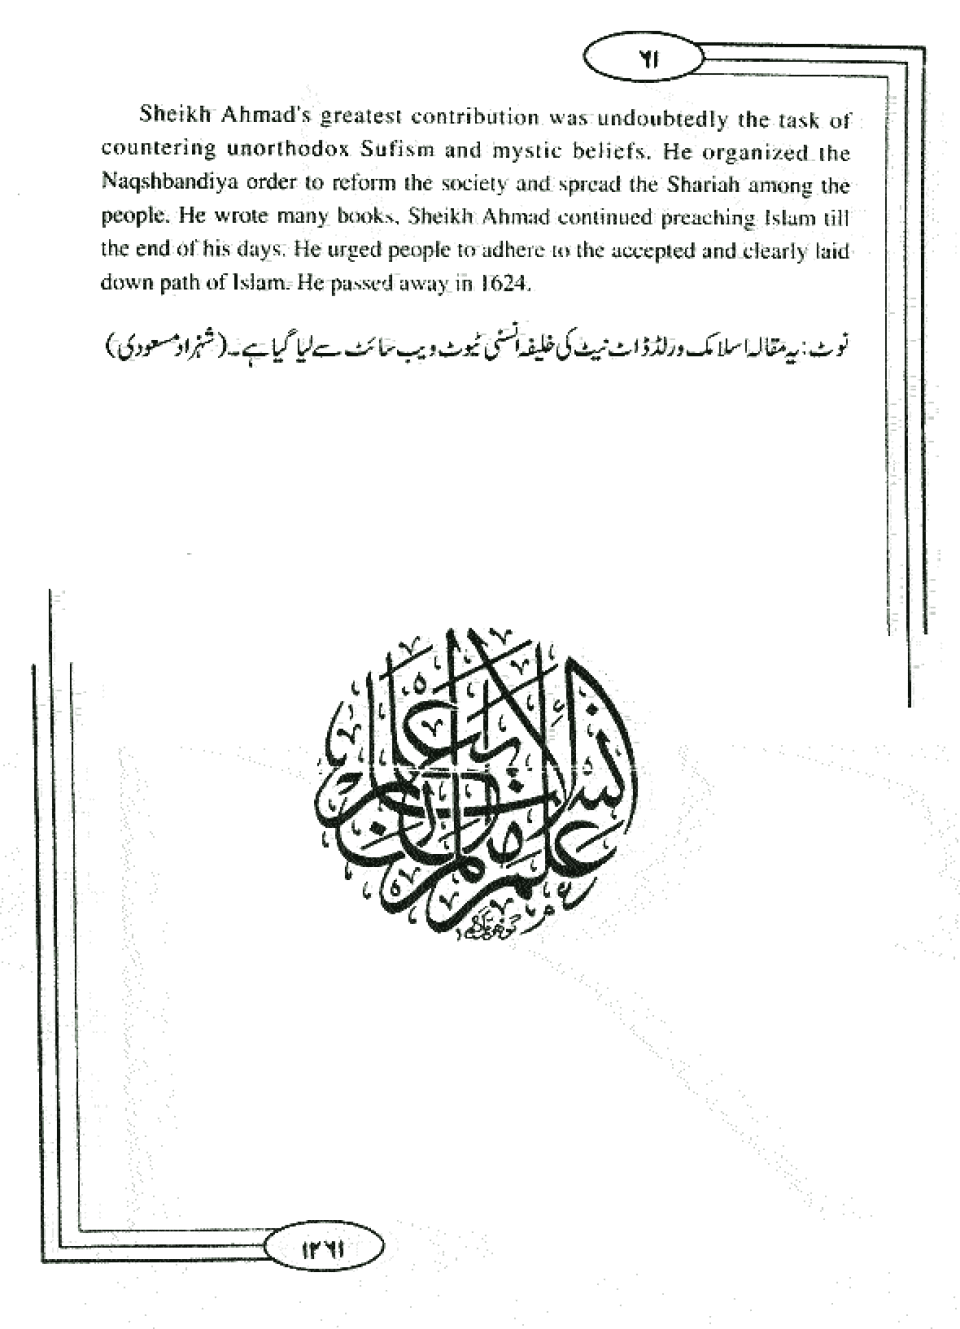 ۶۱
Sheikh Ahmad's greatest contribution was undoubtedly the task of
countering unorthodox Sufism and mystic beliefs. He organized the
Naqshbandiya order to reform the society and spread the Shariah among the
people. He wrote many books. Sheikh Ahmad continued preaching Islam till
the end of his days. He urged people to adhere to the accepted and clearly laid
down path of Islam. He passed away in 1624.
نوٹ: یہ مقالہ اسلامک ورلڈ ڈاٹ نیٹ کی خلیفہ انسٹی ٹیوٹ ویب سائٹ سے لیا گیا ہے۔ (شہزاد مسعودی)
علم الانسان ما لم يعلم
۱۲۶۱